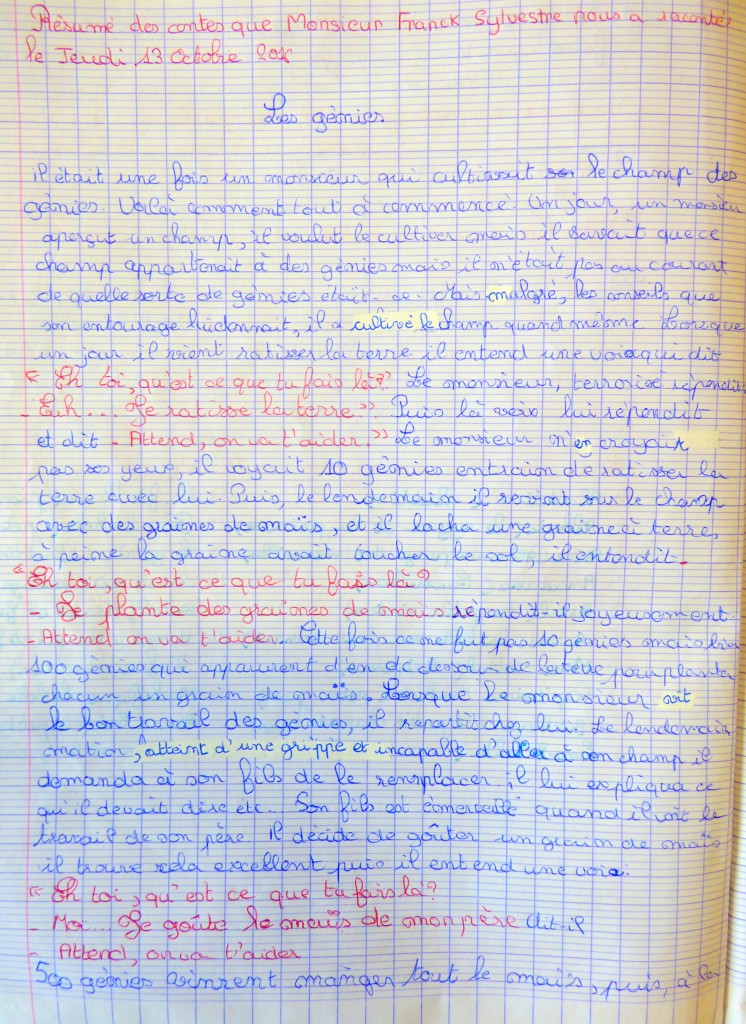 Résumé des contes que Monsieur Franck Sylvestre nous a racontés
le Jeudi 13 Octobre 2016
Les génies
il était une fois un monsieur qui cultivait le champ des
génies. Voilà comment tout à commencé. Un jour, un monsieur
aperçut un champ, il voulut le cultiver mais il savait que ce
champ appartenait à des génies mais il n'était pas au courant
de quelle sorte de génies était-ce. Mais malgré, les conseils que
son entourage lui donnait, il a cultivé le champ quand même. Lorsque
un jour il vient ratisser la terre il entend une voix qui dit
« Eh toi, qu'est ce que tu fais là?" Le monsieur, terrorisé répondit
- Euh... Je ratisse la terre". Puis là voix lui répondit
et dit - Attend, on va t'aider." Le monsieur n'en croyait
pas ses yeux, il voyait 10 génies entraion de ratisser la
terre avec lui. Puis, le lendemain il revient sur le champ
avec des graines de maïs, et il lacha une graine à terre,
à peine la graine avait toucher le sol, il entendit -
"Eh toi, qu'est ce que tu fais là?
- Je plante des graines de maïs répondit-il joyeusement.
- Attend on va t'aider. Cette fois ce ne fut pas 10 génies mais bien
100 génies qui apparurent d'en de dessous de la terre pour planter
chacun un grain de maïs. Lorsque le monsieur vit
le bon travail des génies, il repartit chez lui. Le lendemain
mation, atteint d'une grippe et incapable d'aller à son champ il
demanda à son fils de le remplacer, il lui expliqua ce
qu'il devait dire etc.. Son fils est émerveillé quand il voit le
travail de son père. Il décide de goûter un grain de maïs
il trouve cela excellent puis il entend une voix.
« Eh toi, qu'est ce que tu fais là?
- Moi... Je goûte le maïs de mon père dit-il
- Attend, on va t'aider
500 génies vinrent manger tout le maïs, puis, à la